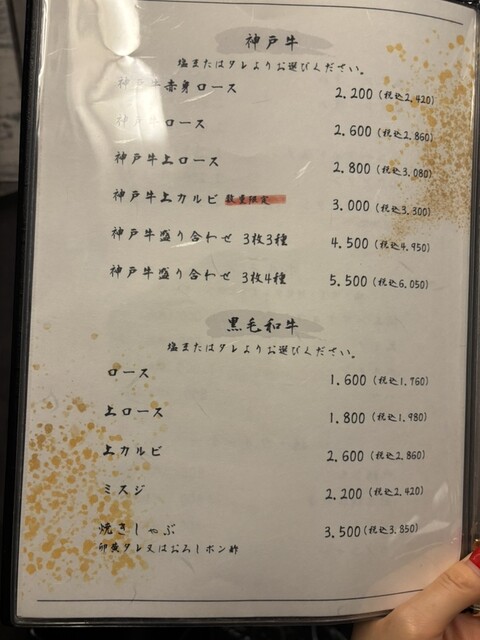 神戸牛
塩またはタレよりお選びください。
神戸牛赤身ロース 2.200 (税込2.420)
神戸牛ロース 2.600 (税込2.860)
神戸牛上ロース 2.800 (税込3.080)
神戸牛上カルビ 数量限定 3.000 (税込3.300)
神戸牛盛り合わせ 3枚3種 4.500 (税込4.950)
神戸牛盛り合わせ 3枚4種 5.500 (税込6.050)
黒毛和牛
塩またはタレよりお選びください。
ロース 1.600 (税込1.760)
上ロース 1.800 (税込1.980)
上カルビ 2.600 (税込2.860)
ミスジ 2.200 (税込2.420)
焼きしゃぶ 3.500 (税込3.850)
卵黄タレ又はおろしポン酢